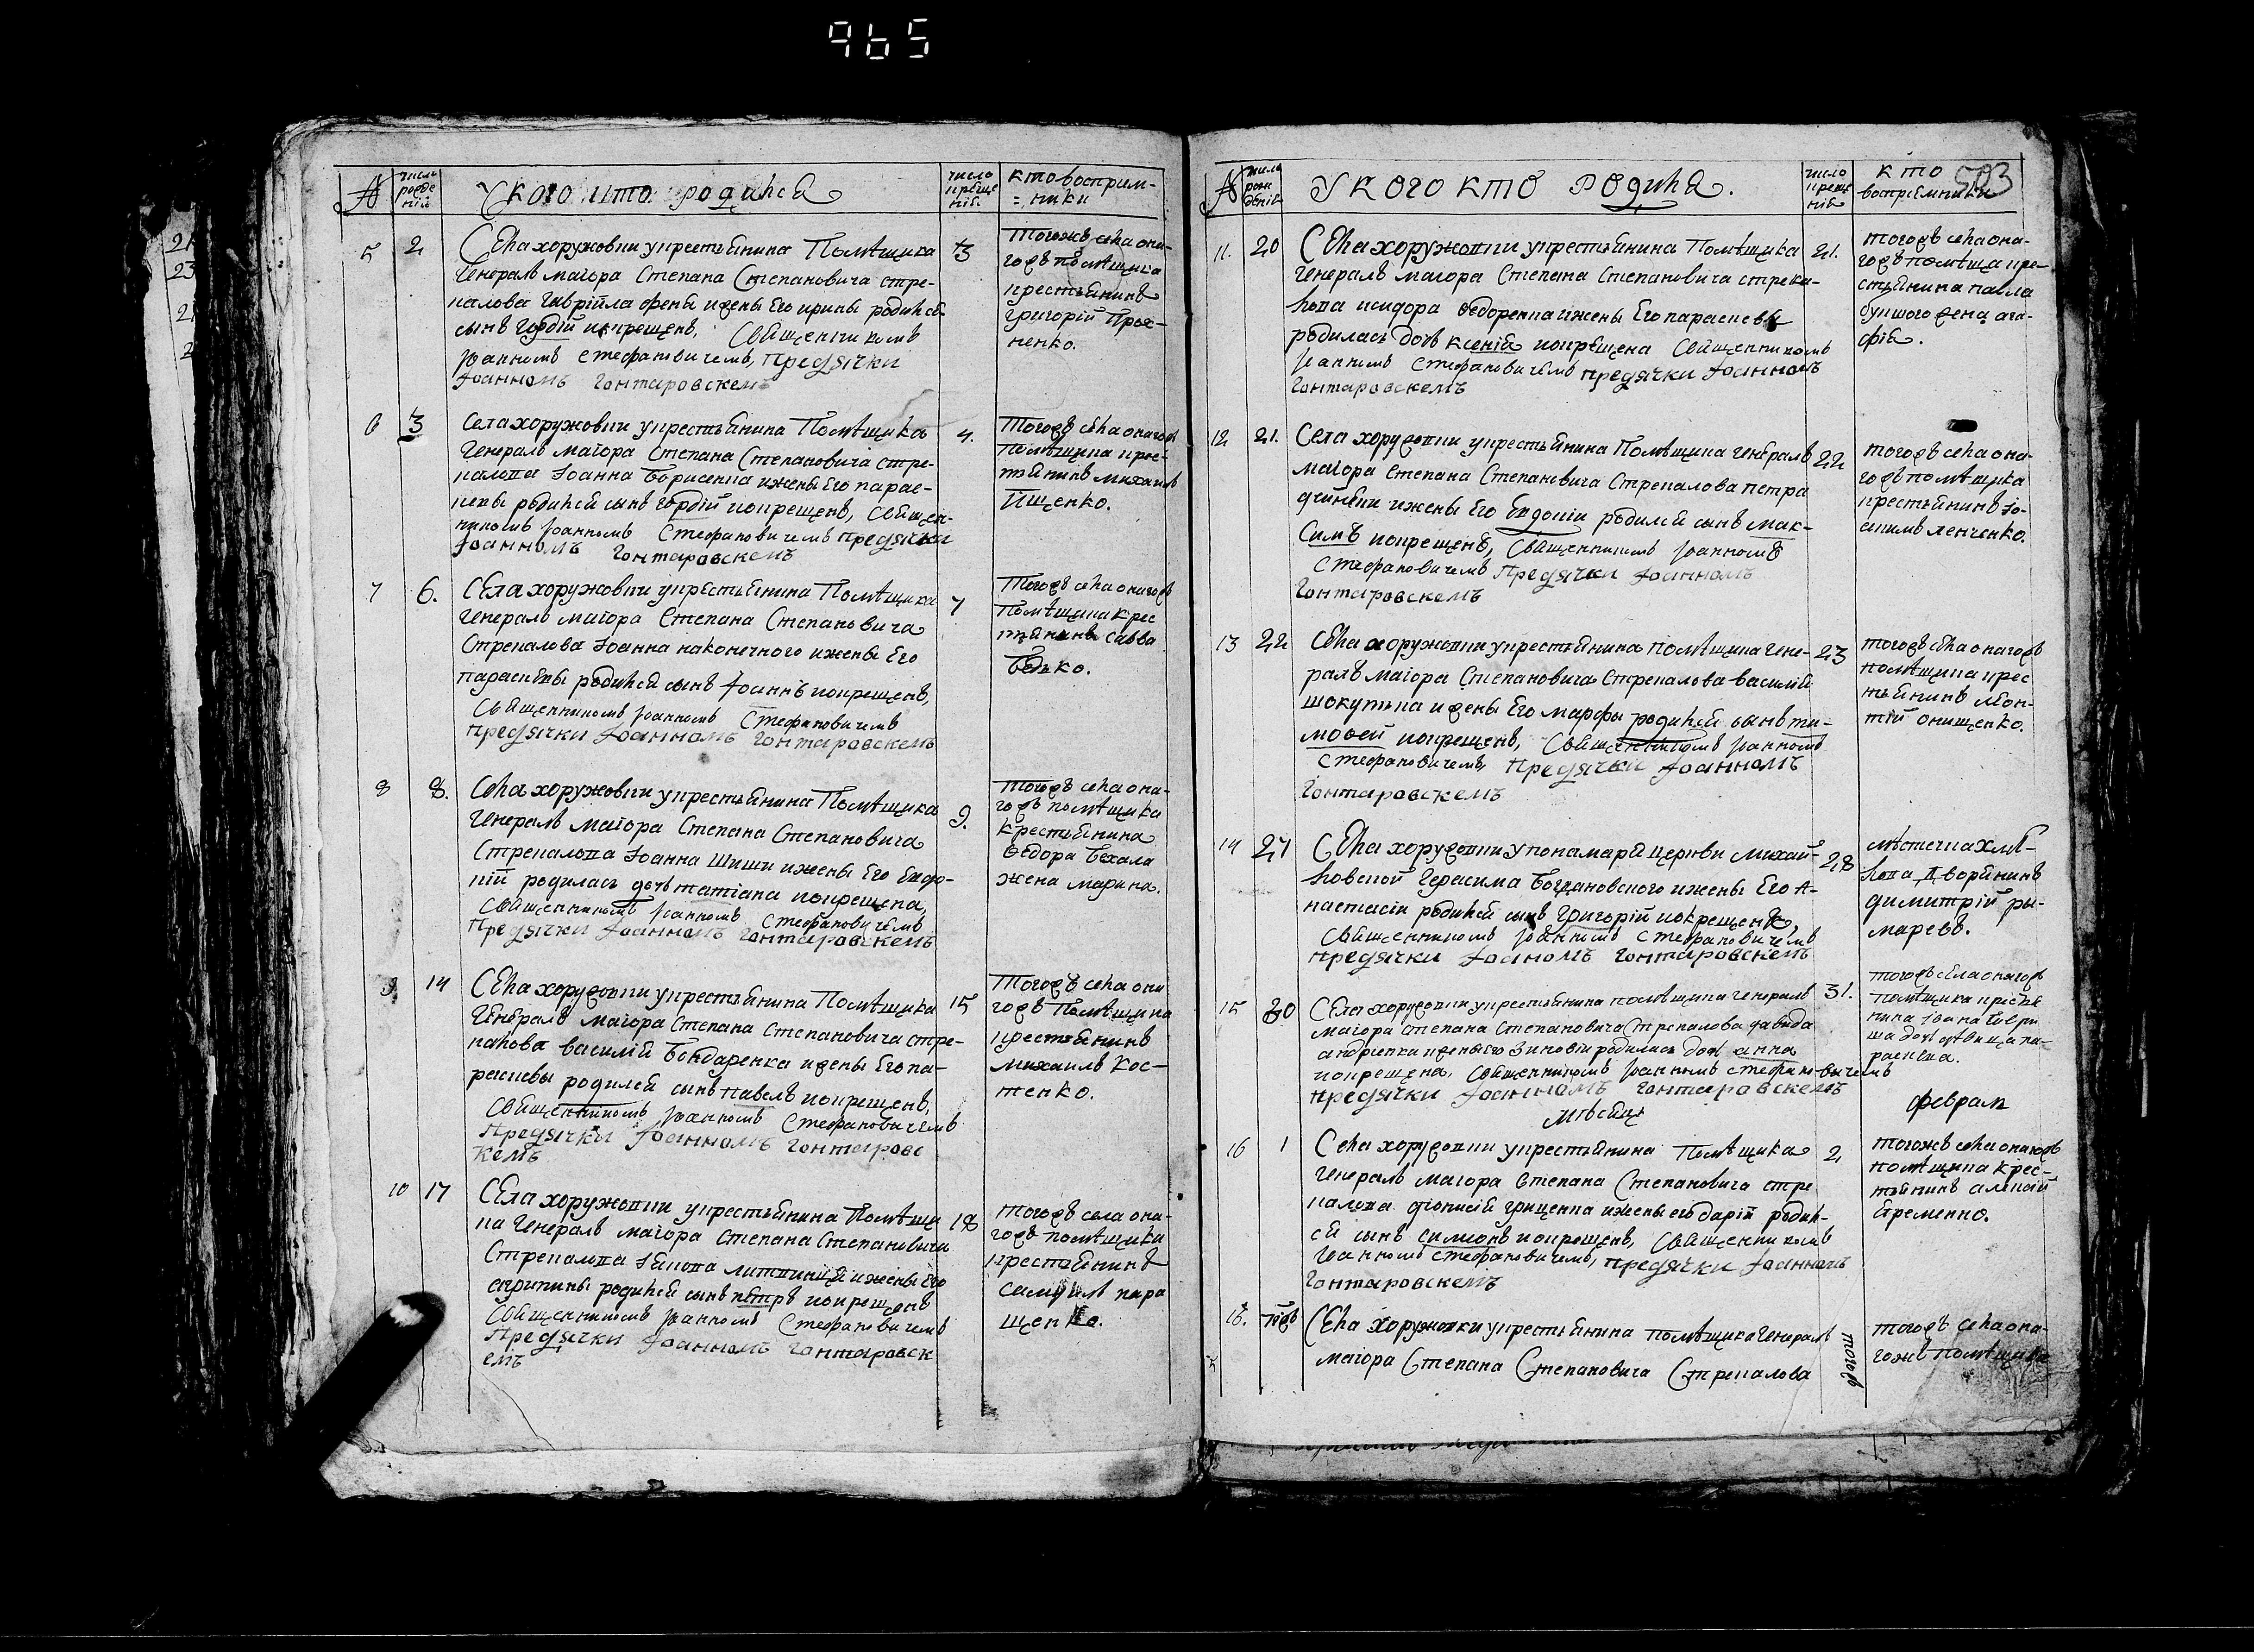 965
№
число рожденій
У кого кто родился
число крещеній
кто восприм-
=ники
5
2
Села хоружовки у крестьянина Помѣщика
Генералъ маіора Степана Степановича стре-
калова Гаврійла жены Его ирины родился
сынъ Гордій и крещенъ, Священникомъ
Іоанномъ Стефановичемъ, Предячки
Іоанномъ Гонтаровскемъ
3
тогожъ села она-
гожъ помѣщика
крестьянинъ
Григорій
ненко.
6
3
Села хоружовки у крестьянина Помѣщика
Генералъ маіора Степана Степановича стре-
калова Іоанна Борисенка и жены Его парас-
кевы родился сынъ Гордій и крещенъ, Священ-
никомъ Іоанномъ Стефановичемъ предячки
Іоанномъ Гонтаровскемъ
4.
Тогожъ села онагожъ
Помѣщика крес-
тянинъ михаилъ
Ищенко.
7
6.
Села хоружовки у крестьянина Помѣщика
Генералъ маіора Степана Степановича
Стрекалова Іоанна наконечного и жены Его
параскевы родился сынъ Іоаннъ и крещенъ,
Священникомъ Іоанномъ Стефановичемъ
предячки Іоанномъ Гонтаровскемъ
7
Тогожъ села онагожъ
Помѣщика Крес
тянинъ Савва
8
8.
Села хоружовки у крестьянина Помѣщика
Генералъ маіора Степана Степановича
Стрекалова Іоанна Шиши и жены Его Евдо-
кій родилась дочь татіана и крещена,
Священникомъ Іоанномъ Стефановичемъ
Предячки Іоанномъ Гонтаровскемъ
9.
тогожъ села она-
гожъ помѣщика
Крестьянина
Ѳедора Бехала
жена марина.
9
14
Села хоружовки у крестьянина Помѣщика
Генералъ маіора Степана Степановича стре-
калова василій Бондаренка и жены Его па-
раскевы родился сынъ павелъ и крещенъ,
Священникомъ Іоанномъ Стефановичемъ
Предячки Іоанномъ Гонтаровс
кемъ
15
Тогожъ села она
гожъ Помѣщика
крестьянинъ
михаилъ Кос-
тенко.
10
17
Села хоружовки у крестьянина Помѣщи
ка Генералъ маіора Степана Степановича
Стрекалова Іакова литвинця и жены Его
акрипины родился сынъ петръ и крещенъ
Священникомъ Іоанномъ Стефановичемъ
Предячки Іоанномъ Гонтаровск
емъ
18
тогожъ села она-
гожъ помѣщика
крестьянинъ
Самуилъ пара
щенко.
593
№
число рожденій
У КОГО КТО РОДИЛСЯ.
число крещеній
кто
воспріемники
11.
20
Села хоружовки у крестьянина Помѣщика
Генералъ маіора Степана Степановича стрека-
лова исидора Ѳедоренка и жены Его параскевы
родилась дочь Ксенія и крещена Священникомъ
Іоанномъ Стефановичемъ предячки Іоанномъ
Гонтаровскемъ
21.
тогожъ села она-
гожъ помѣща кре-
стьянина павла
жена ага-
фія.
12
21.
Села хоружовки у крестьянина Помѣщика генералъ
маіора Степана Степановича Стрекалова петра
и жены Его Евдокіи родился сынъ мак-
симъ и крещенъ, Священникомъ Іоанномъ
Стефановичемъ Предячки Іоанномъ
Гонтаровскемъ
22
тогожъ села она-
гожъ помѣщика
крестьянинъ Іо-
акимъ ленченко.
13
22
Села хоружовки у крестьянина помѣщика гене-
ралъ маіора Степановича Стрекалова василій
шокутька и жены Его марфы родился сынъ ти-
моѳей и крещенъ, Священникомъ Іоанномъ
Стефановичемъ, Предячки Іоанномъ
Гонтаровскемъ
23
тогожъ села онагожъ
помѣщика крес
тьянинъ леон-
тій онищенко.
14
27
Села хоружовки у понамаря церкви михай-
ловской Герасима Богдановского и жены Его А-
настасіи родился сынъ григорій и крещенъ,
Священникомъ Іоанномъ Стефановичемъ
предячки Іоаномъ Гонтаровскемъ
28
мѣстечка хмѣ-
лова Дворянинъ
димитрій ры-
маревъ.
15
30
Села хоружовки у крестьянина помѣщика генералъ
маіора степана Степановича Стрекалова давида
андрѣенка и жены его Зиновіи родилась дочь анна
и крещена, Священникомъ Іоанномъ стефановичемъ
предячки Іоанномъ Гонтаровскемъ
31.
тогожъ села онагожъ
помѣщика крестья
нина Іоана
ша дочь дѣвица па-
раскева.
мѣсяцъ
февраля
16
1
Села хоружовки у крестьянина Помѣщика
Генералъ маіора Степана Степановича стре
калова діонисій грищенка и жены его дарій родил-
ся сынъ симіонъ и крещенъ, Священникомъ
Іоанномъ Стефановичемъ, предячки Іоанномъ
Гонтаровскемъ
2
тогожъ села онагожъ
помѣщика крес-
тьянинъ алексѣй
Яременко.
16.
тогожъ
Села хоружовки у крестьянина помѣщика Генералъ
маіора Степана Степановича Стрекалова
тогожъ
тогожъ села она-
гожъ помѣщика